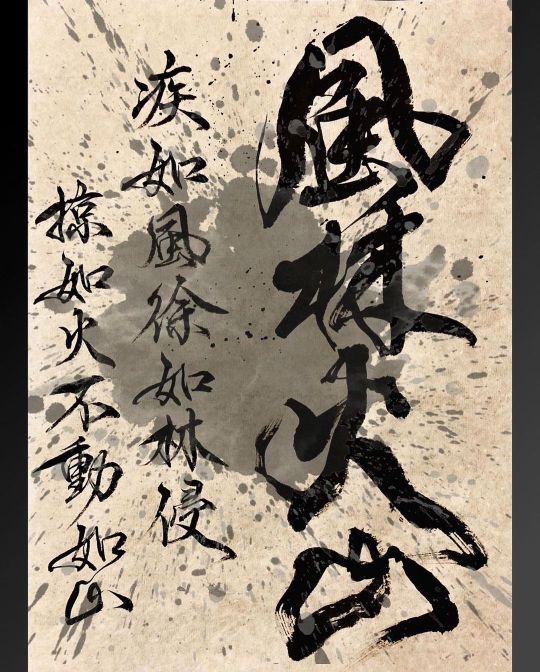 風林火山
疾如風徐如林侵
掠如火不動如山